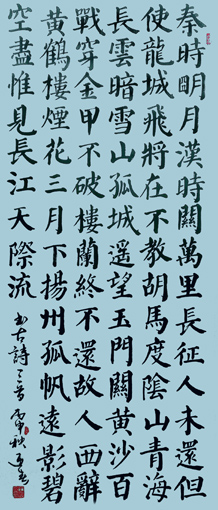 秦時明月漢時關萬里長征人未還但
使龍城飛將在不教胡馬度陰山青海
長雲暗雪山孤城遙望玉門關黃沙百
戰穿金甲不破樓蘭終不還故人西辭
黃鶴樓煙花三月下揚州孤帆遠影碧
空盡惟見長江天際流 古詩三首 丙申秋